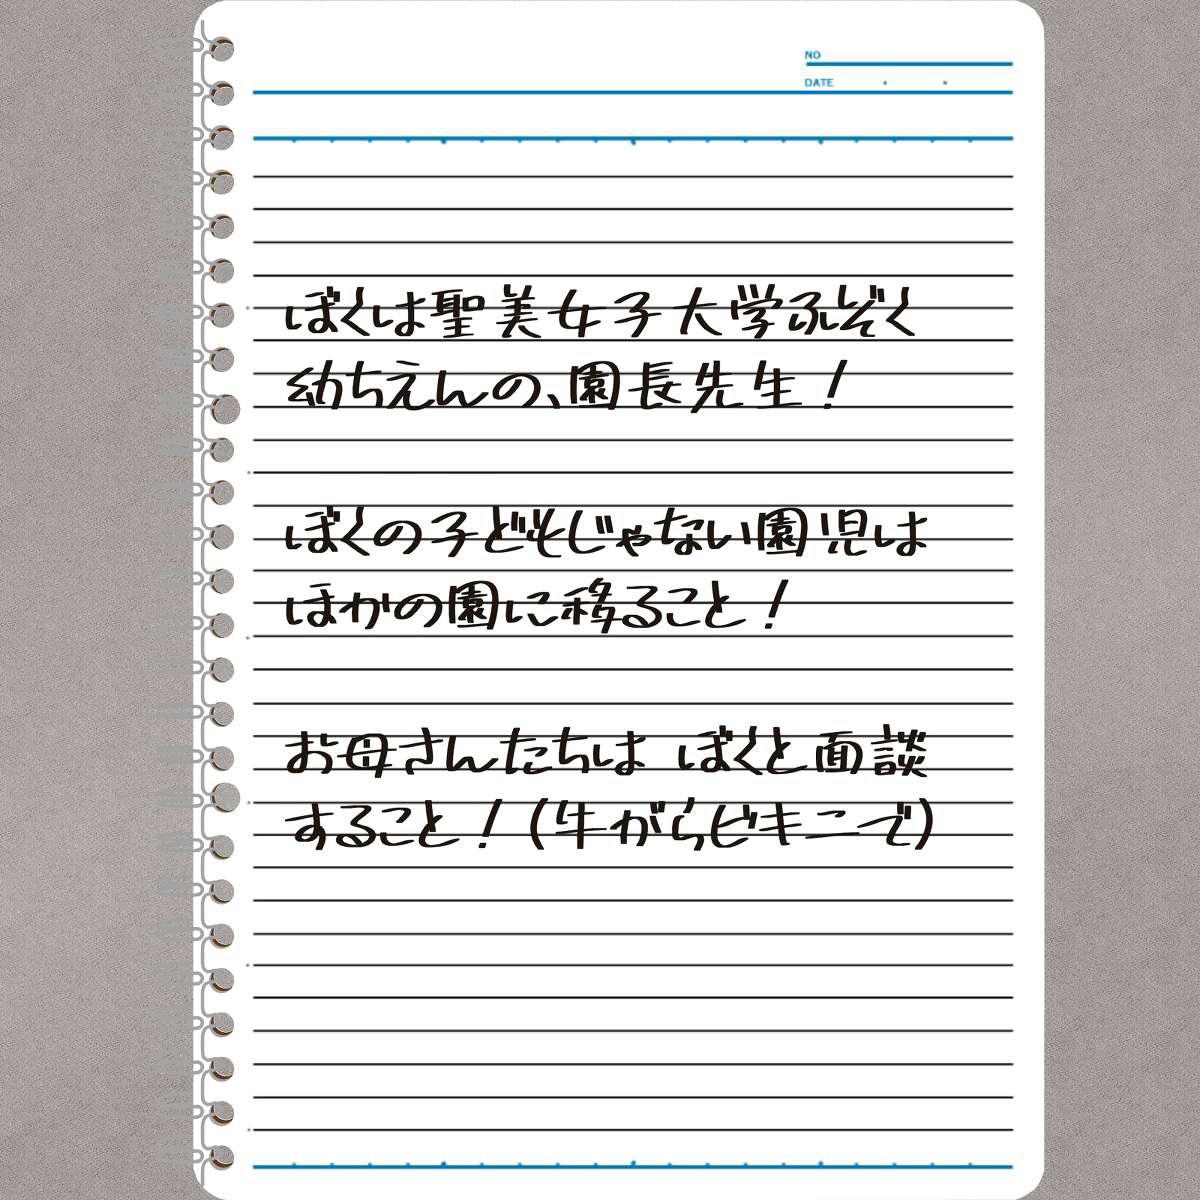 NO
DATE
ぼくは聖美女子大学ふぞく
幼ちえんの、園長先生！
ぼくの子どもじゃない園児は
ほかの園に移ること！
お母さんたちは ぼくと面談
すること！（牛がらビキニで）